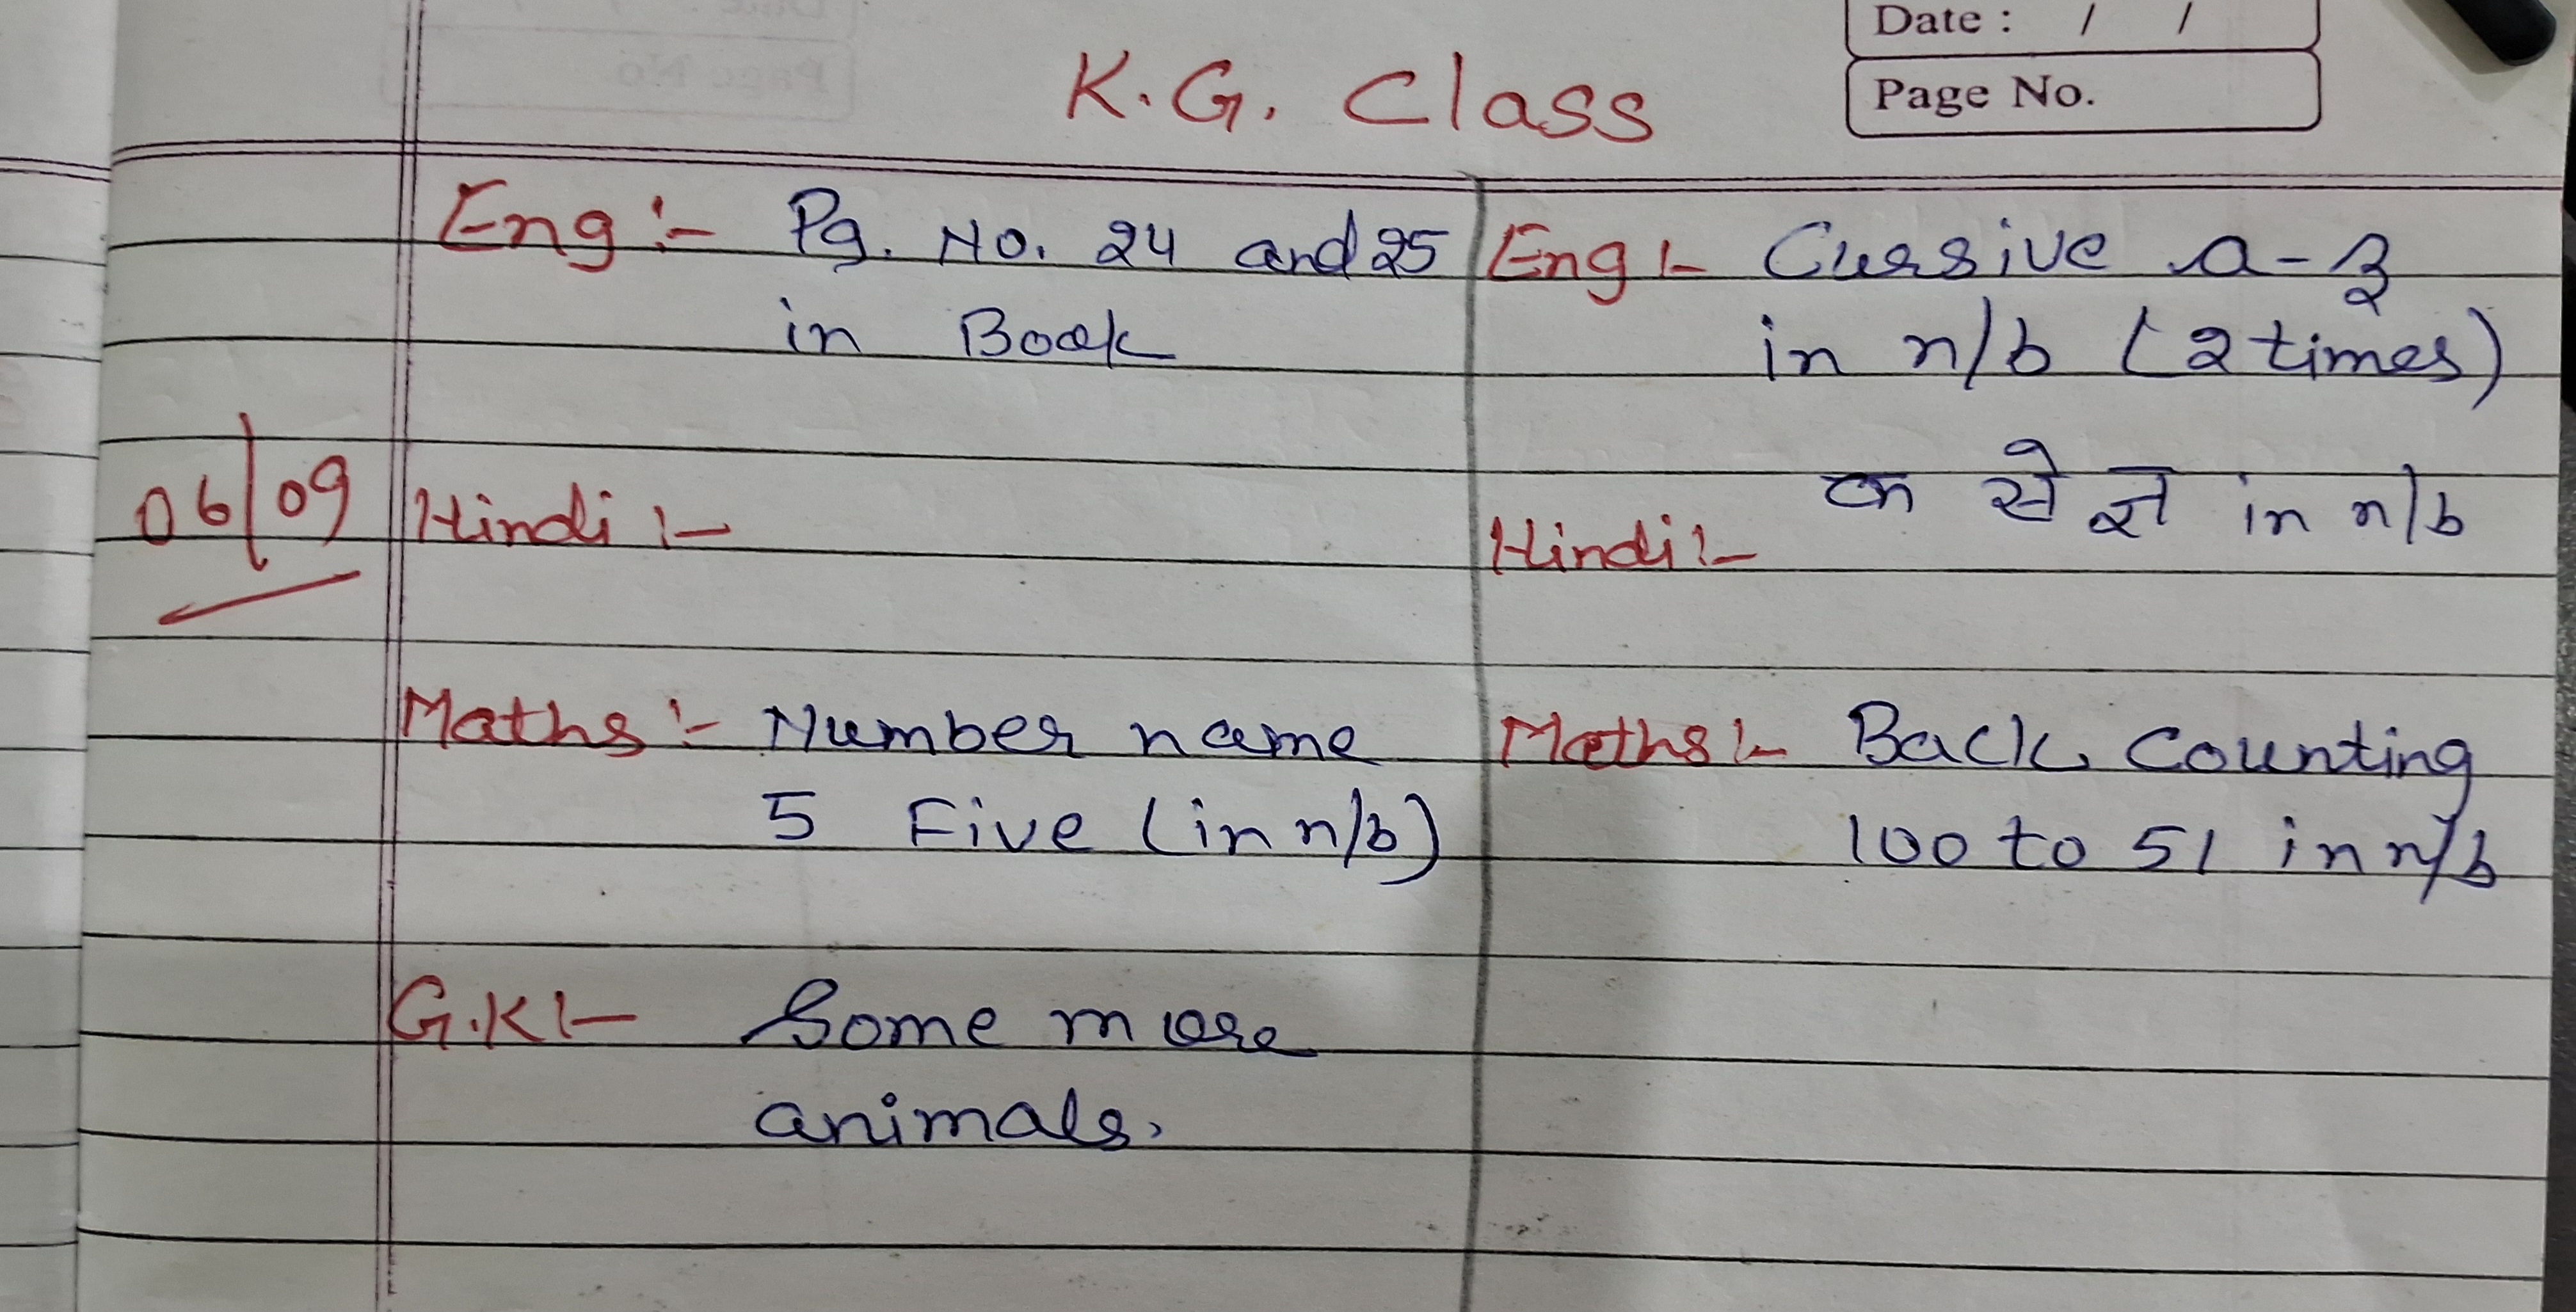 Date : / /
Page No.
K.G. Class
Eng :- Pg. No. 24 and 25
in Book
06/09
Hindi :-
Maths :- Number name
5 Five (in n/b)
G.K :- Some more
animals.
Eng :- Cursive a-z
in n/b (2 times)
क से ज्ञ in n/b
Hindi :-
Maths :- Back Counting
100 to 51 in n/b